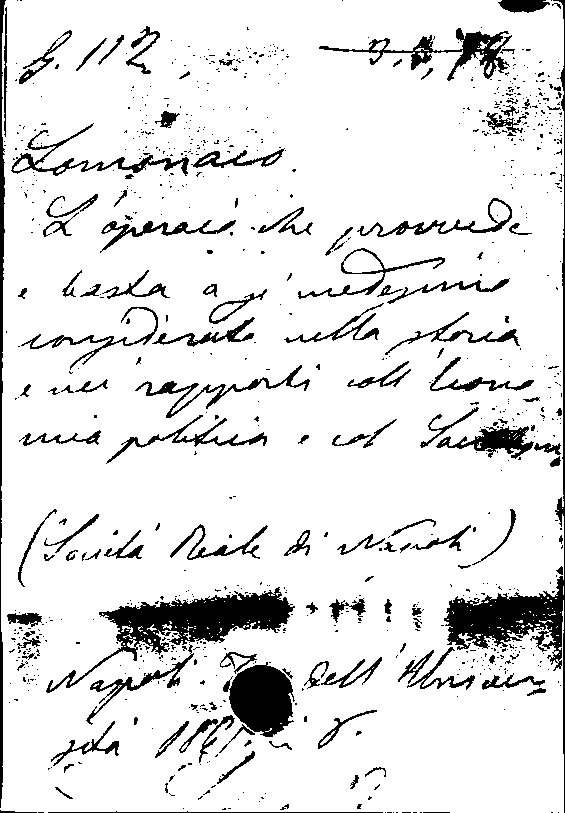 G. 112
3.5.78
Lomonaco.
L'operaio che provvede
e basta a se' medesimo
considerato nella storia
e nei rapporti coll' Econo
mia politica e col
(Società Reale di Napoli)
Napoli. dell' Univer
sità in 8.